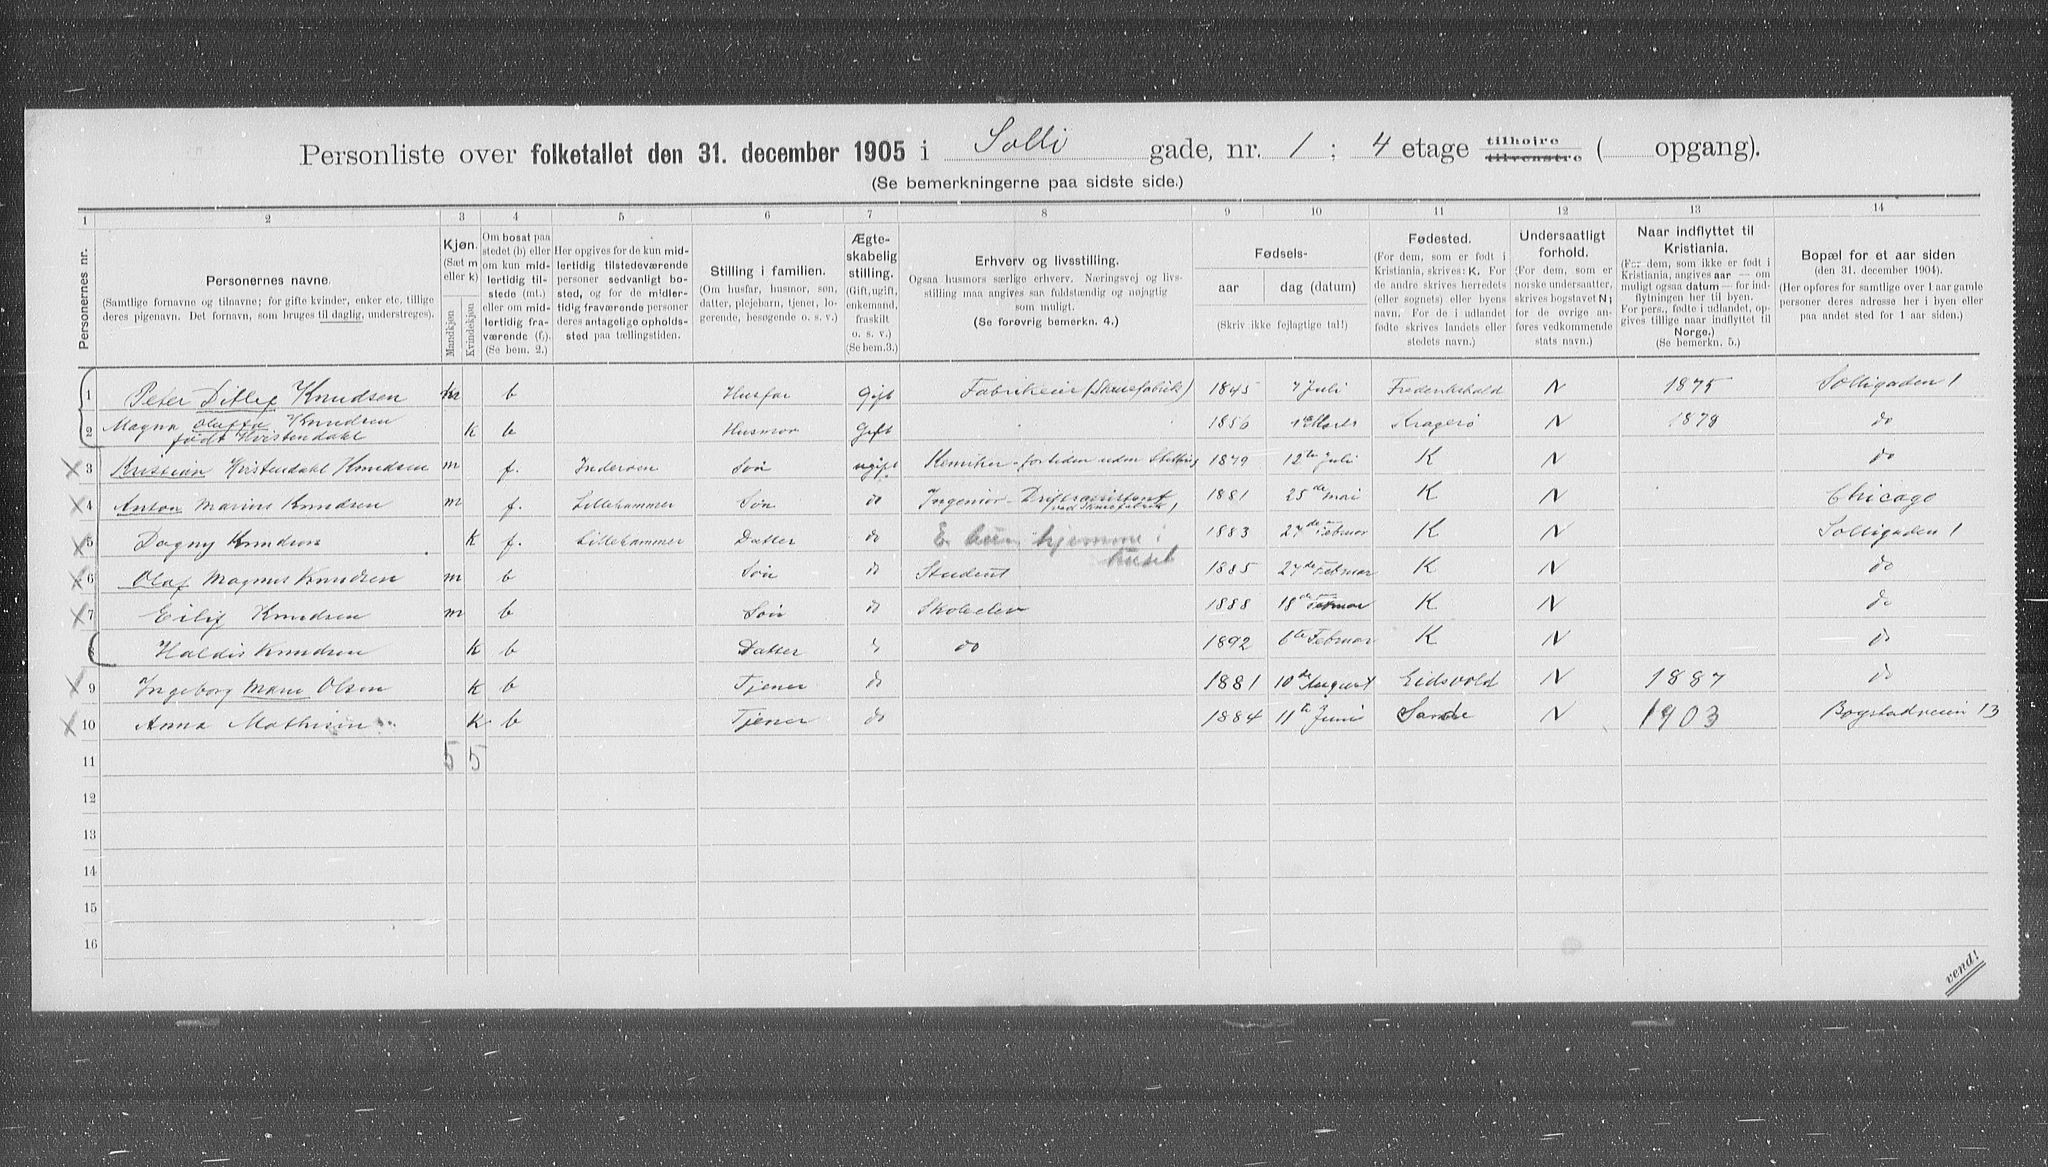 Personliste over folketallet den 31. december 1905 i Solli gade, nr. 1; 4 etage tilhøjre tilvenstre ( opgang).
(Se bemerkningerne paa sidste side.)
1 2 3 4 5 6 7 8 9 10 11 12 13 14
Personernes nr.
Personernes navne.
(Samtlige fornavne og tilnavne; for gifte kvinder, enker etc. tillige
deres pigenavn. Det fornavn, som bruges til daglig, understreges).
Kjøn.
(Sæt m
eller k)
Mandkjøn
Kvindekjøn
Om bosat paa
stedet (b) eller
om kun mid-
lertidig til-
stede (mt.)
eller om mid-
lertidig fra-
værende (f.).
(Se bem. 2.)
Her opgives for de kun mid-
lertidig tilstedeværende
personer sedvanligt bo-
sted, og for de midler-
tidig fraværende personer
deres antagelige opholds-
sted paa tællingstiden.
Stilling i familien.
(Om husfar, husmor, søn,
datter, plejebarn, tjener, lo-
gerende, besøgende o. s. v.)
Ægte-
skabelig
stilling.
(Gift, ugift,
enkemand,
fraskilt
o. s. v.)
(Se bem.3.)
Erhverv og livsstilling.
Ogsaa husmors særlige erhverv. Næringsvej og livs-
stilling maa angives saa fuldstændig og nøjagtig
som muligt.
(Se forøvrig bemerkn. 4.)
Fødsels-
aar
dag (datum)
(Skriv ikke fejlagtige tal!)
Fødested.
(For dem, som er født i
Kristiania, skrives: K. For
de andre skrives herredets
(eller sognets) eller byens
navn. For de i udlandet
fødte skrives landets eller
stedets navn.)
Undersaatligt
forhold.
(For dem, som er
norske undersaatter,
skrives bogstavet N;
for de øvrige an-
føres vedkommende
stats navn.)
Naar indflyttet til
Kristiania.
(For dem, som ikke er født i
Kristiania, angives aar — om
muligt ogsaa datum — for ind-
flytningen her til byen.
For pers., fødte i udlandet, op-
gives tillige naar indflyttet til
Norge.)
(Se bemerkn. 5.)
Bopæl for et aar siden
(den 31. december 1904).
(Her opføres for samtlige over 1 aar gamle
personer deres adresse her i byen eller
paa andet sted for 1 aar siden.)
1 Peter Ditlef Knudsen m b Husfar Gift Fabrikeier (Skruefabrik) 1845 7 Juli Frederikshald N 1875 Solligaden 1
2 Magna Oluffa Knudsen
født Kvistendahl K b Husmor Gift 1856 Marts Kragerø N 1879 do
3 Kristian Kvistendahl Knudsen m f. Inderøen Søn ugift Kemiker - for tiden uden Stilling 1879 12te Juli K N do
4 Anton Marius Knudsen m f. Lillehammer Søn do Ingeniør - Driftsassistent
ved Skruefabrik 1881 25de mai K N Chicago
5 Dagny Knudsen K f. Lillehammer Datter do hjemme i
huset 1883 27de Februar K N Solligaden 1
6 Olaf Magnus Knudsen m b Søn do Student 1885 27de Februar K N do
7 Eilif Knudsen m b Søn do Skoleelev 1888 18de Februar K N do
8 Haldis Knudsen K b Datter do 1892 6te Februar K N do
9 Ingeborg Marie Olsen K b Tjener do 1881 10de August Eidsvold N 1887 do
10 Anna Mathisen K b Tjener do 1884 11te Juni Sande N 1903 Bogstadveien 13
11 5 5
12
13
14
15
16
vend!